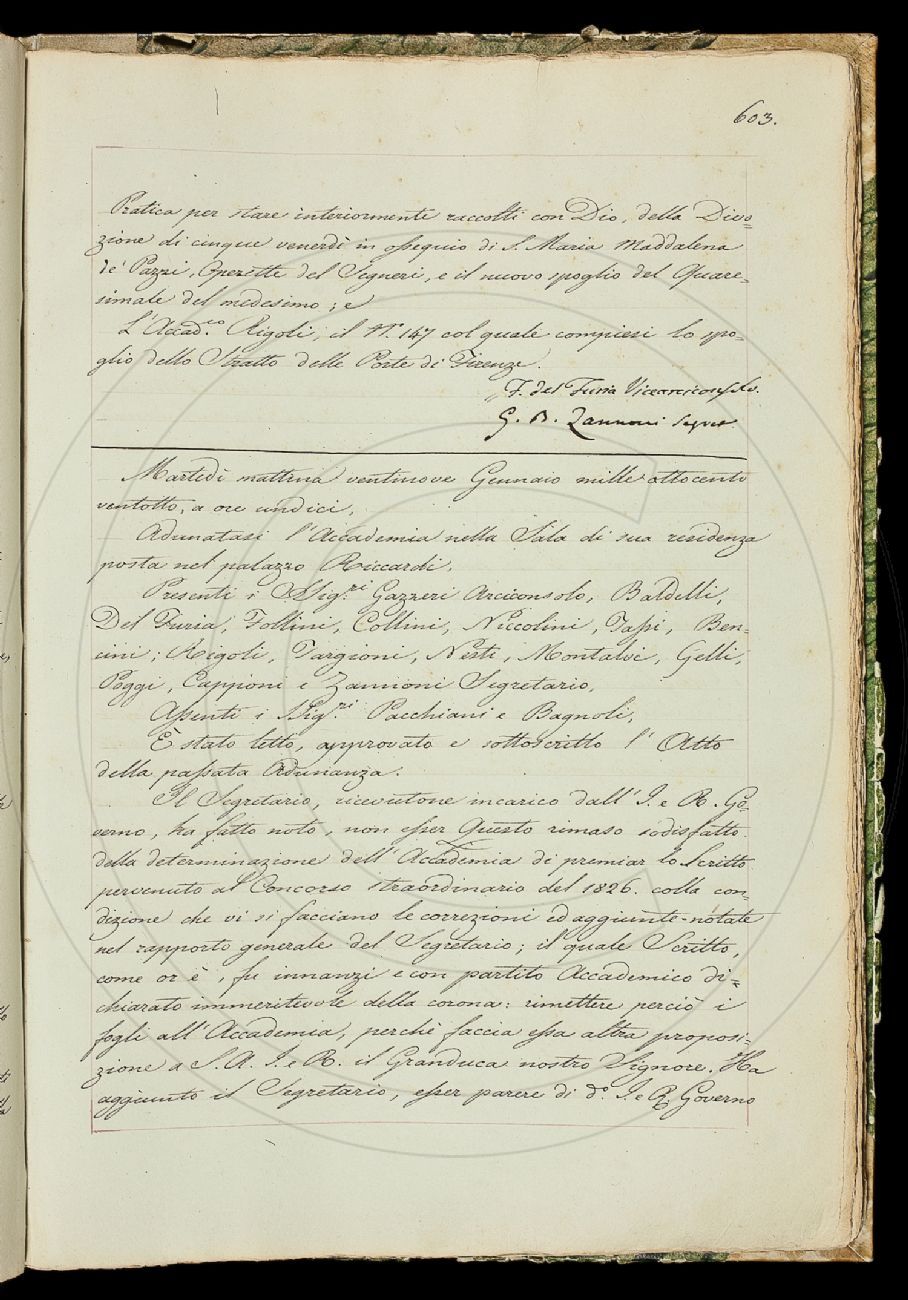 603.
Pratica per stare interiormente raccolti con Dio, della Divo=
zione di cinque venerdì in ossequio di S. Maria Maddalena
de' Pazzi, Operette del Segneri, e il nuovo spoglio del Quare=
simale del medesimo; e
L'Accad.co Rigoli, il N.º 147 col quale compiesi lo spo=
glio dello Stratto delle Porte di Firenze.
F. del Furia Vicearciconsolo.
G. B. Zannoni Segret.
Martedì mattina ventinove Gennaio mille ottocento
ventotto, a ore undici,
Adunatasi l'Accademia nella Sala di sua residenza
posta nel palazzo Riccardi.
Presenti i SSig.ri Gazzeri Arciconsolo, Baldelli,
Del Furia, Follini, Collini, Niccolini, Tassi, Ben=
cini, Rigoli, Targioni, Nesti, Montalvi, Gelli,
Poggi, Capponi e Zannoni Segretario,
Assenti i Sig.ri Pacchiani e Bagnoli,
È stato letto, approvato e sottoscritto l'Atto
della passata Adunanza.
Il Segretario, ricevutone incarico dall'I. e R. Go=
verno, ha fatto noto, non esser Questo rimaso sodisfatto
della determinazione dell'Accademia di premiar lo Scritto
pervenuto al Concorso straordinario del 1826. colla con
dizione che vi si facciano le correzioni ed aggiunte notate
nel rapporto generale del Segretario; il quale Scritto,
come or è, fu innanzi e con partito Accademico di=
chiarato immeritevole della corona: rimettere perciò i
fogli all'Accademia, perchè faccia essa altra proposi=
zione a S. A. I. e R. il Granduca nostro Signore. Ha
aggiunto il Segretario, esser parere di d.º I. e R. Governo